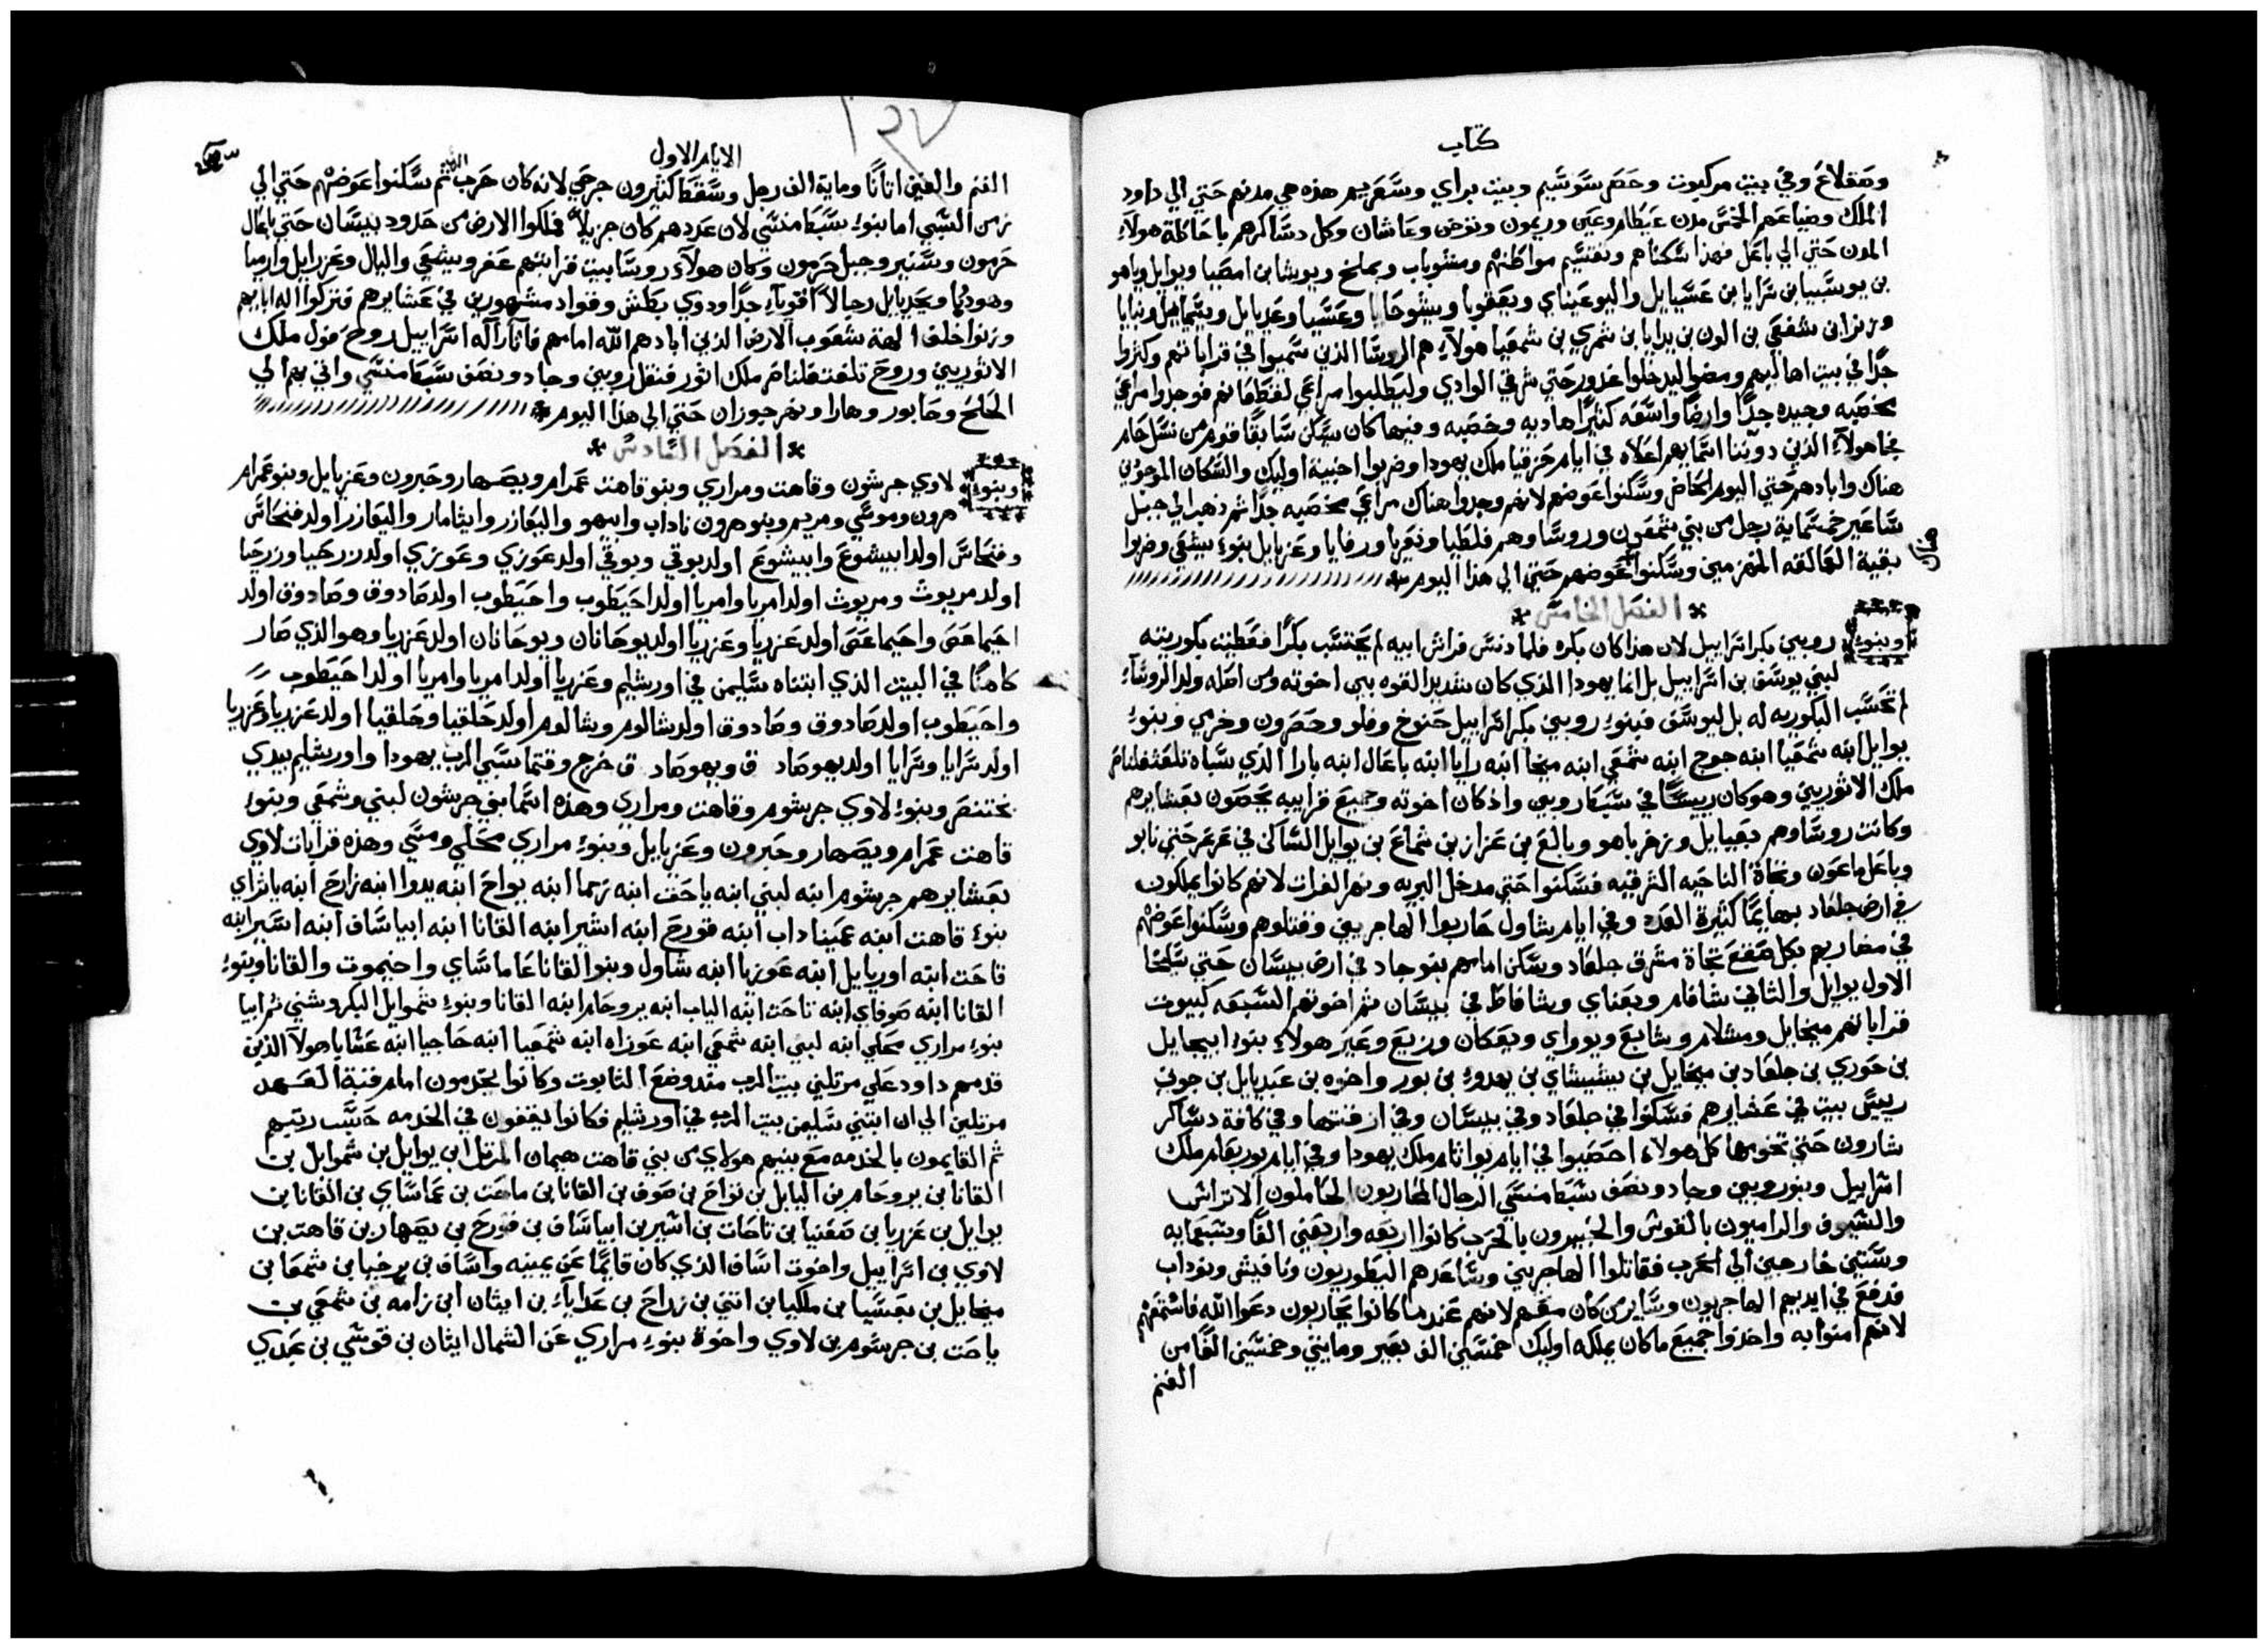 كتاب
وصقلاغ وفي بيت مركبوت وحصر سوسيم وبيت براي وسعريم هذه هي مدنهم حتي الي داود
الملك وضياعهم الخمس مدن عيطام وعين وريمون وتوخن وعاشان وكل دساكرهم باحاطة هولاءِ
المدن حتي الي باعل فهذا سكناهم وتقسيم مواطنهم ومشوباب ويملخ ويوشا بن امصيا ويوايل وياهو
بن يوسبيا بن سرايا بن عسيايل واليوعيناي ويعقوبا ويشوحايا وعسيا وعديايل ويسمايل وبنايا
وزيزا بن شفعي بن الون بن يدايا بن شمري بن شمعيا هولاءِ هم الروسا الذين سميوا في قراباتهم وكثروا
جدًا في بيت اهاليهم ومضوا ليدخلوا غدور حتي شرقي الوادي وليطلبوا مراعي لقطعانهم فوجدوا مراعي
مخصبه وجيده جدًا وارضًا واسعه كثيرًا هاديه وخصبه وفيها كان سكن سابقًا قوم من نسل حام
فجا هولاءِ الذين دوّنا اسمايهم اعلاه في ايام حزقيا ملك يهودا وضربوا اخبية اوليك والسكان الموجودين
هناك وابادهم حتي اليوم الحاضر وسكنوا عوضهم لانهم وجدوا هناك مراعي مخصبه جدًا ثم ذهب الي جبل
ساعير خمسماية رجل من بني شمعون وروساوهم فلطيا ونعريا ورفايا وعزيايل بنوءِ يشعي وضربوا
بقية العمالقه المنهزمين وسكنوا عوضهم حتي الي هذا اليوم
هناك
الفصل الخامس
وبنوءِ روبين بكر اسراييل لان هذا كان بكره فلما دنس فراش ابيه لم يحتسب بكرًا فعطيت بكوريته
لبني يوسف بن اسراييل بل انما يهودا الذي كان شديد القوه بين اخوته ومن اصله ولد الروساءِ
لم تحسب البكوريه له بل ليوسف فبنوءِ روبين بكر اسراييل حنوخ وفلو وحصرون وخرمي وبنوءِ
يوايل ابنه شمعيا ابنه جوج ابنه شمعي ابنه ميخا ابنه رايا ابنه باعال ابنه بارا الذي سباه تلغثفلناصر
ملك الاثوريين وهو كان رييسًا في سبط روبين واذ كان اخوته وجميع قرابيه يحصون بعشايرهم
وكانت روساوهم يعيايل وزخرياهو وبالع بن عزاز بن شماع بن يوايل الساكن في عرعر حتي نابو
وباعل ماعون وتجاة الناحيه الشرقيه فسكنوا حتي مدخل البريه ونهر الفرات لانهم كانوا يملكون
في ارض جلعاد بهايمًا كثيرة العدد وفي ايام شاول حاربوا الهاجريين وقتلوهم وسكنوا عوضهم
في مضاربهم بكل صقع تجاة مشرق جلعاد وسكن امامهم بنو جاد في ارض بيسان حتي سلخا
الاول يوايل والثاني شافام ويعناي وشافاط في بيسان ثم اخوتهم السبعه كبيوت
قراباتهم ميخايل ومشلام وشابع ويوراي ويعكان وزيع وعبر هولاءِ بنوءِ ابيحايل
بن حوري بن جلعاد بن ميخايل بن يشيشاي بن يحدوءِ بن بوز واخوه بن عبديايل بن جوني
رييس بيت في عشايرهم فسكنوا في جلعاد وفي بيسان وفي ازقتها وفي كافة دساكر
شارون حتي تخومها كل هولاءِ احصيوا في ايام يواثام ملك يهودا وفي ايام يوربعام ملك
اسراييل وبنو روبين وجاد ونصف سبط منسي الرجال المحاربون الحاملون الاتراس
والسيوف والراميون بالقوس والخبيرون بالحرب كانوا اربعه واربعين الفًا وسبعمايه
وستين خارجين الي الحرب فقاتلوا الهاجريين وساعدهم اليطوريون ونافيش ونوداب
فدفع في ايديهم الهاجريون وساير من كان معهم لانهم عندما كانوا يحاربون دعوا الله فاستمعهم
لانهم امنوا به واخذوا جميع ما كان يملكه اوليك خمسين الف بعير ومايتين وخمسين الفًا من
الغنم
الايام الاول
الغنم والفين اتانًا وماية الف رجل وسقط كثيرون جرحي لانه كان حرب الله ثم سكنوا عوضهم حتي الي
زمن السبي اما بنوءِ سبط منسي لان عددهم كان جزيلًا فملكوا الارض من حدود بيسان حتي باعال
حرمون وسنير وجبل حرمون وكان هولاءِ روسا بيت قرابتهم عفر ويشعي واليال وعزرايل وارميا
وهودايا ويحديايل رجالًا اقوياءِ جدًا وذوي بطش وقواد مشهورين في عشايرهم فتركوا اله ابايهم
وزنوا خلف الهة شعوب الارض الذين ابادهم الله امامهم فاثار اله اسراييل روح فول ملك
الاثوريين وروح تلغت فلناصر ملك اثور فنقل روبين وجاد ونصف سبط منسي واتي بهم الي
الحلح وحابور وهارا ونهر جوزان حتي الي هذا اليوم
الفصل السادس
وبنوءِ لاوي جرشون وقاهت ومراري وبنو قاهت عمرام ويصهار وحبرون وعزيايل وبنو عمرام
هرون وموسي ومريم وبنو هرون ناداب وابيهو واليعازر وايثامار واليعازر اولد فنحاس
وفنحاس اولد ابيشوع وابيشوع اولد بوقي وبوقي اولد عوزي وعوزي اولد زرحيا وزرحيا
اولد مريوث ومريوث اولد امريا وامريا اولد احيطوب واحيطوب اولد صادوق وصادوق اولد
احيماعص واحيماعص اولد عزريا وعزريا اولد يوحانان ويوحانان اولد عزريا وهو الذي صار
كاهنًا في البيت الذي ابتناه سليمن في اورشليم وعزريا اولد امريا وامريا اولد احيطوب
واحيطوب اولد صادوق وصادوق اولد شالوم وشالوم اولد حلقيا وحلقيا اولد عزريا وعزريا
اولد سرايا وسرايا اولد يهوصاد ق ويهوصاد ق خرج وقتما سبي الرب يهودا واورشليم بيدي
بختنصر وبنوءِ لاوي جرشوم وقاهت ومراري وهذه اسما بني جرشون لبني وشمعي وبنوءِ
قاهت عمرام ويصهار وحبرون وعزيايل وبنوءِ مراري محلي ومسي وهذه قرابات لاوي
بعشايرهم جرشوم ابنه لبني ابنه ياحت ابنه زما ابنه يواح ابنه يدوا ابنه زارح ابنه ياثراي
بنوءِ قاهت ابنه عميناداب ابنه قورح ابنه اشير ابنه القانا ابنه ابياساف ابنه اسير ابنه
تاحت ابنه اوريايل ابنه عوزيا ابنه شاول وبنو القانا عاماساي واحيموت والقانا وبنوءِ
القانا ابنه صوفاي ابنه ناحت ابنه الياب ابنه يروحام ابنه القانا وبنوءِ شموايل البكر وشني ثم ابيا
بنوءِ مراري محلي ابنه لبني ابنه شمعي ابنه عوزاه ابنه شمعيا ابنه حاجيا ابنه عسايا هولاء الذين
قدمهم داود علي مرتلين بيت الرب منذ وضع التابوت وكانوا يخدمون امام قبة العهد
مرتلين الي ان ابتني سليمن بيت الرب في اورشليم فكانوا يقفون في الخدمه حسب رتبهم
ثم القايمون بالخدمه مع بنيهم هولاي من بني قاهت هيمان المرتل ابن يوايل بن شموايل بن
القانا بن يروحام بن اليايل بن نواح بن صوف بن القانا بن ماحت بن عماساي بن القانا بن
يوايل بن عزريا بن صفنيا بن تاحات بن اشير بن ابياساف بن قورح بن يصهار بن قاهت بن
لاوي بن اسراييل واخوت اساف الذي كان قايمًا عن يمينه واساف بن برخيا بن شمعا بن
ميخايل بن بعسيا بن ملكيا بن اتني بن زراح بن عداياءِ بن ايثان ابن زامه بن شمعي بن
ياحت بن جرشوم بن لاوي واخوة بنوءِ مراري عن الشمال ايثان بن قوشي بن عبدي